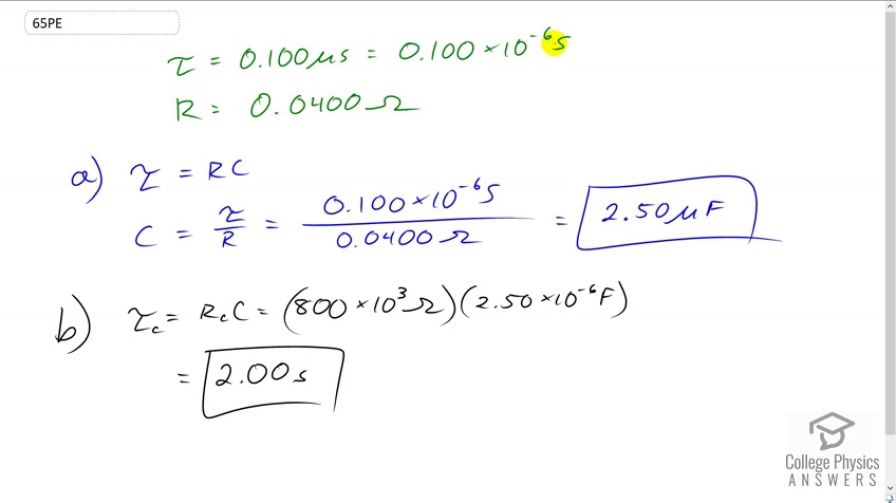 65PE
τ = 0.100 μs = 0.100 × 10⁻⁶ s
R = 0.0400 Ω
a) τ = RC
C = τ/R = 0.100 × 10⁻⁶ s / 0.0400 Ω = 2.50 μF
b) τc = RcC = (800 × 10³ Ω)(2.50 × 10⁻⁶ F)
= 2.00 s
College Physics
ANSWERS